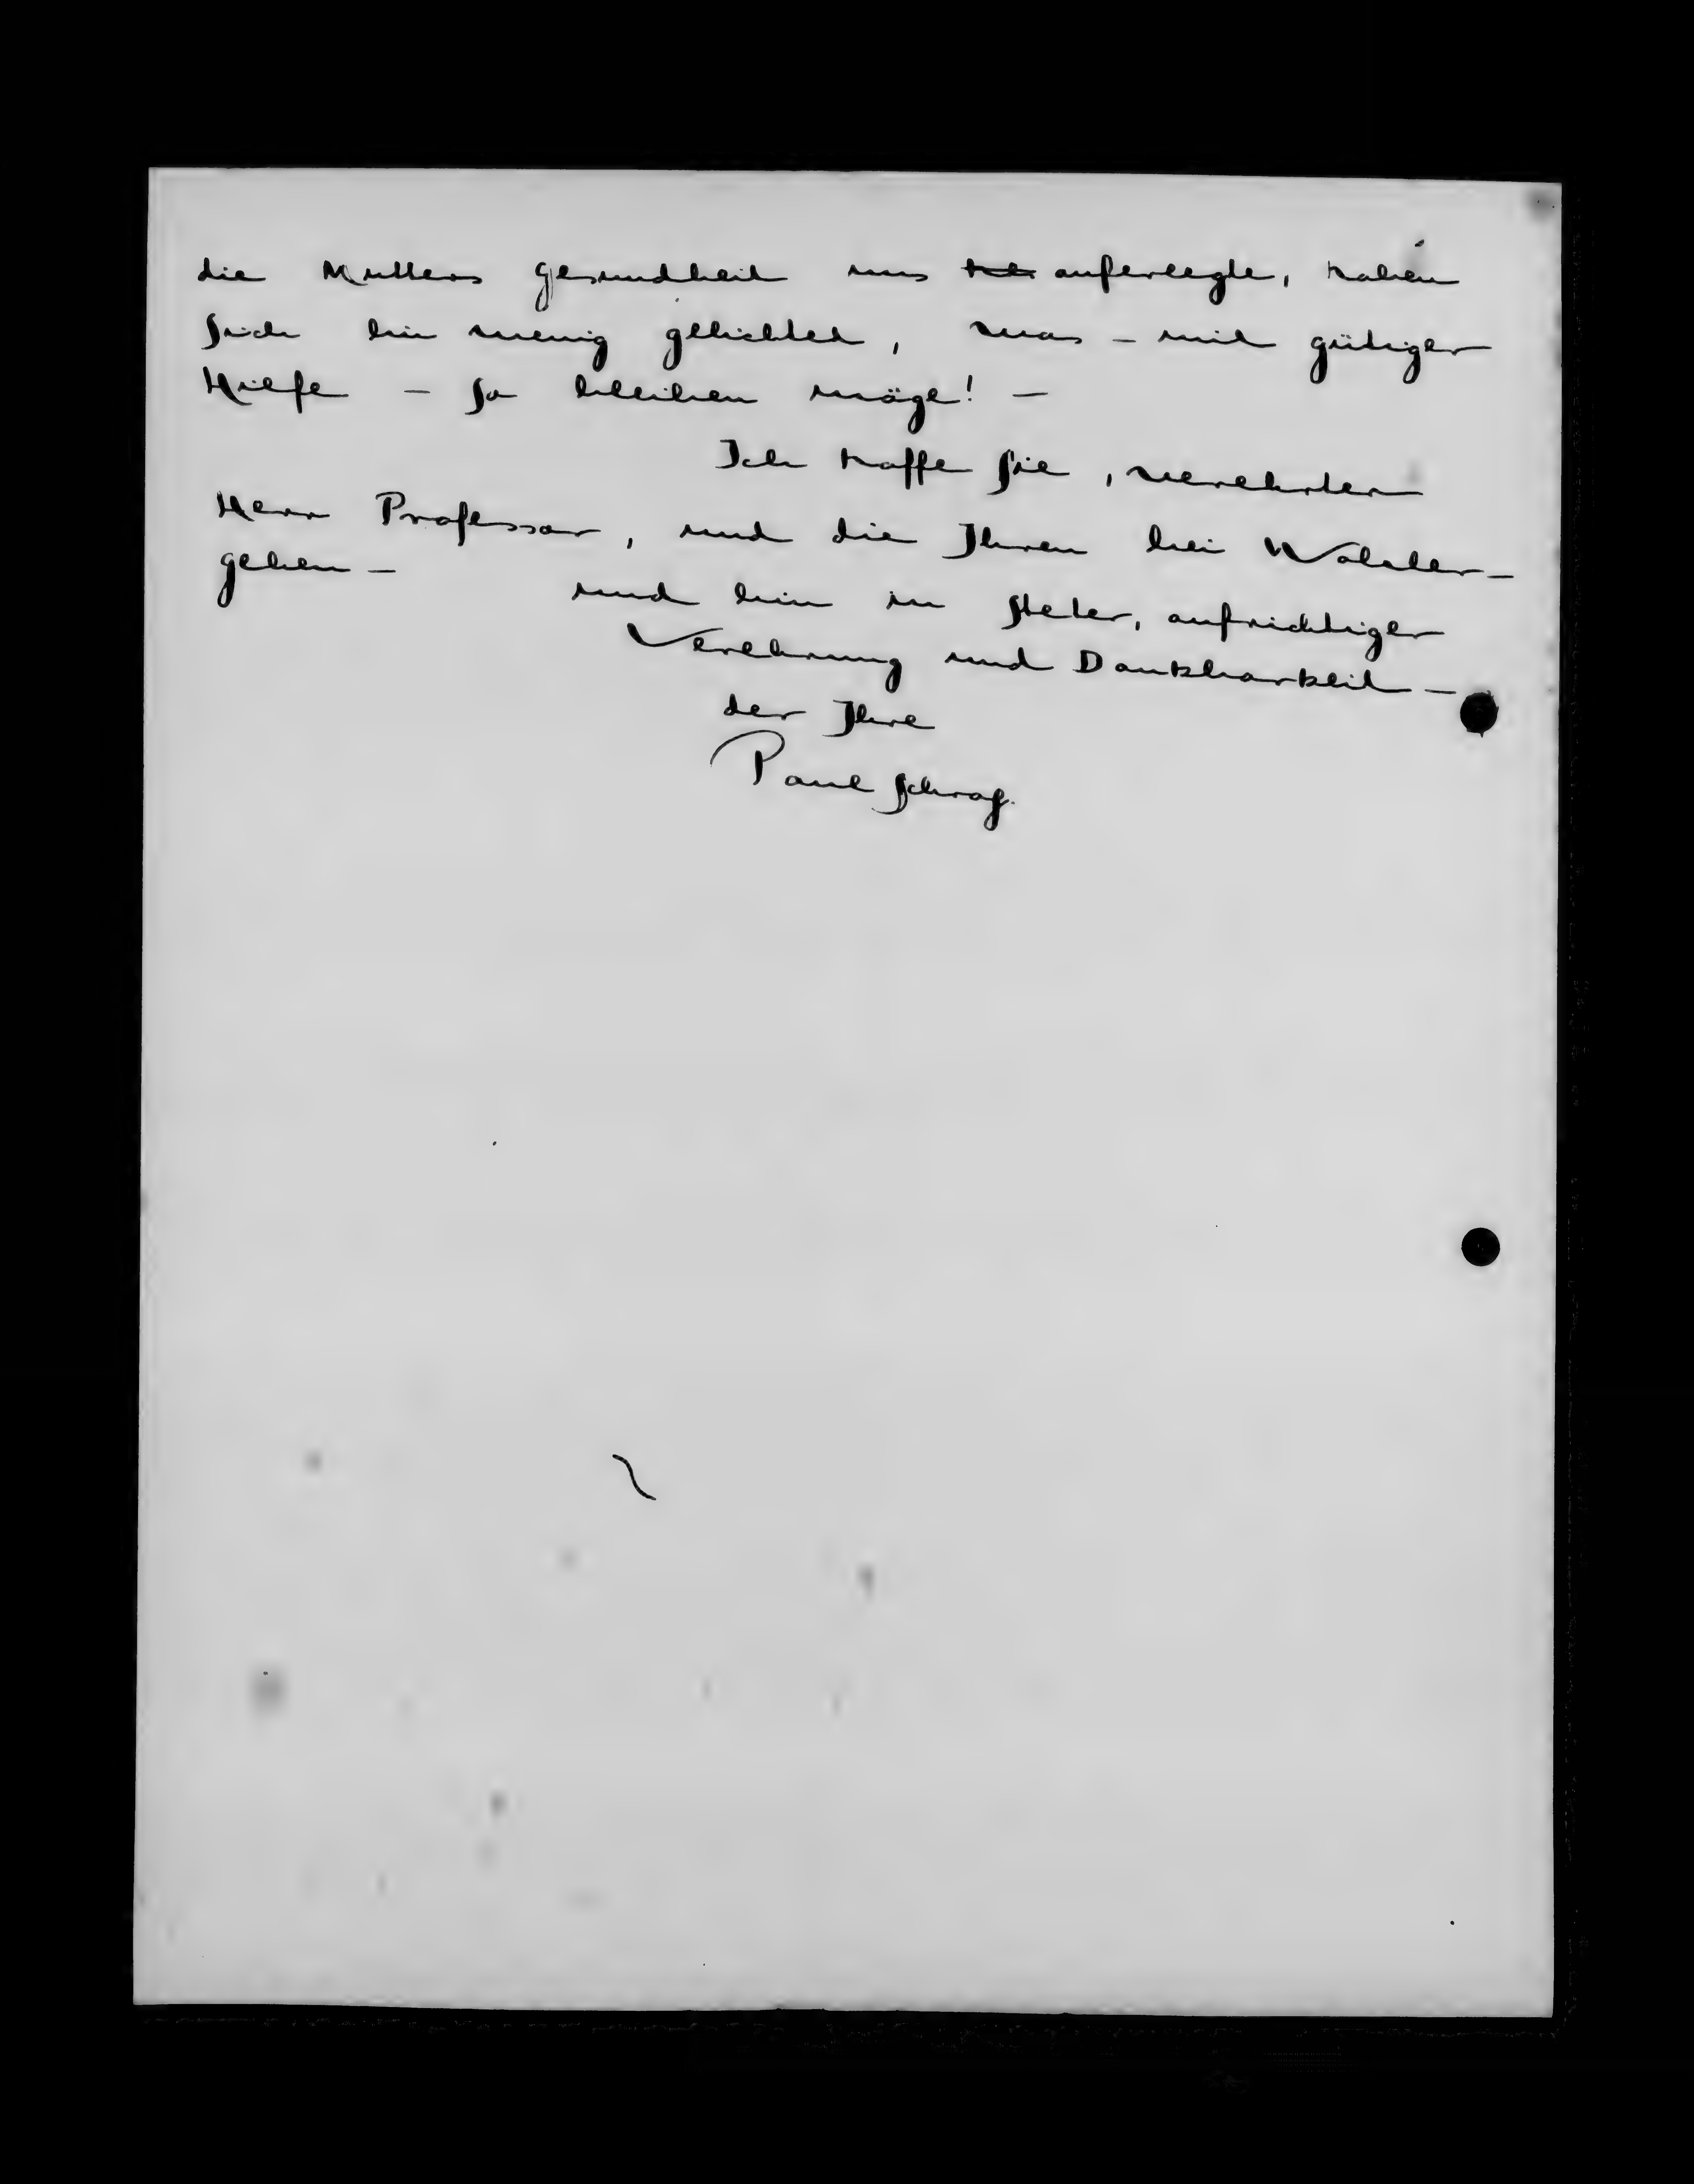 die Mutters Gesundheit uns auferlegte, haben
sich ein wenig gelichtet, was – mit gütiger
Hilfe – so bleiben möge! –
Ich hoffe Sie, verehrter
Herr Professor, und die Ihren bei Wohler-
gehen –
und bin in steter, aufrichtiger
Verehrung und Dankbarkeit –
der Ihre
Paul Schrag.